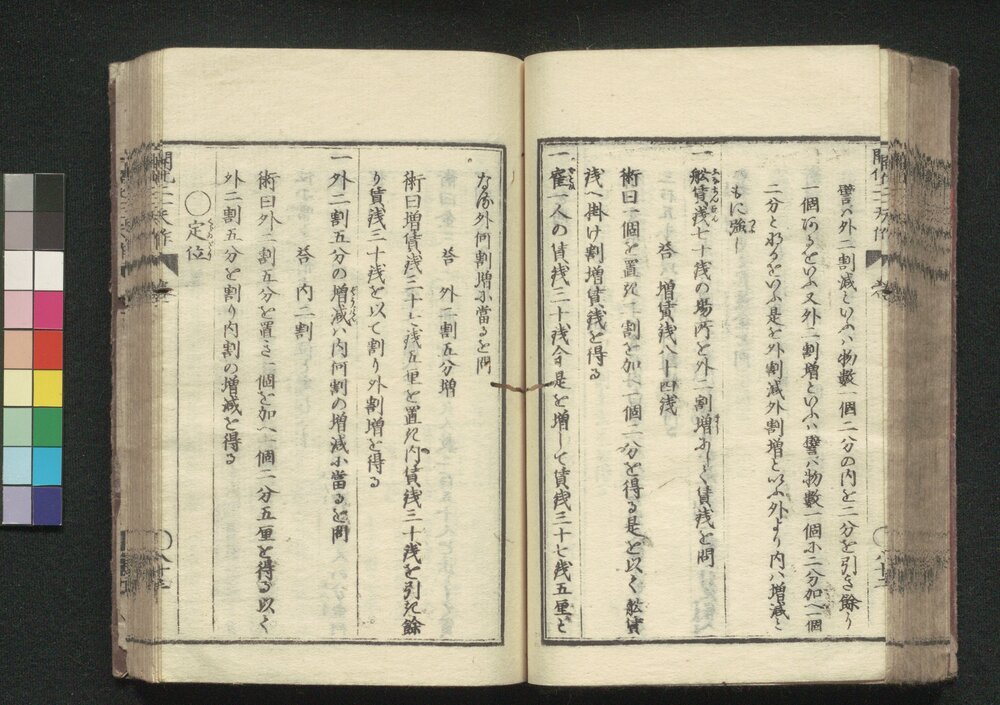 譬ハ外二割減といふハ物數一個二分の内を二分を引き餘り
一個なるをいふ又外二割増といふハ譬バ物數一個に二分加へ一個
二分と相なるをいふ是を外割減外割増といふ外より内ハ増減と
もに強し
一 舩賃浅七十浅の場所を外二割増にして賃浅を問
答 増賃浅八十四浅
術曰一個を置き二割を加へ一個二分を得る是を以て舩賃
浅へ掛け割増賃浅を得る
一 雇一人の賃浅三十浅今是を増して賃浅三十七浅五厘と
なる外何割増に當るを問
答 外二割五分増
術曰増賃浅三十七浅五厘を置き内賃浅三十浅を引き餘
り賃浅三十浅を以て割り外割増を得る
一 外二割五分の増減ハ内何割の増減に當るを問
答 内二割
術曰外二割五分を置き一個を加へ一個二分五厘を得る以て
外二割五分を割り内割の増減を得る
○定位